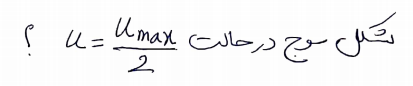 شکل موج در حالت u = u_max / 2 ؟